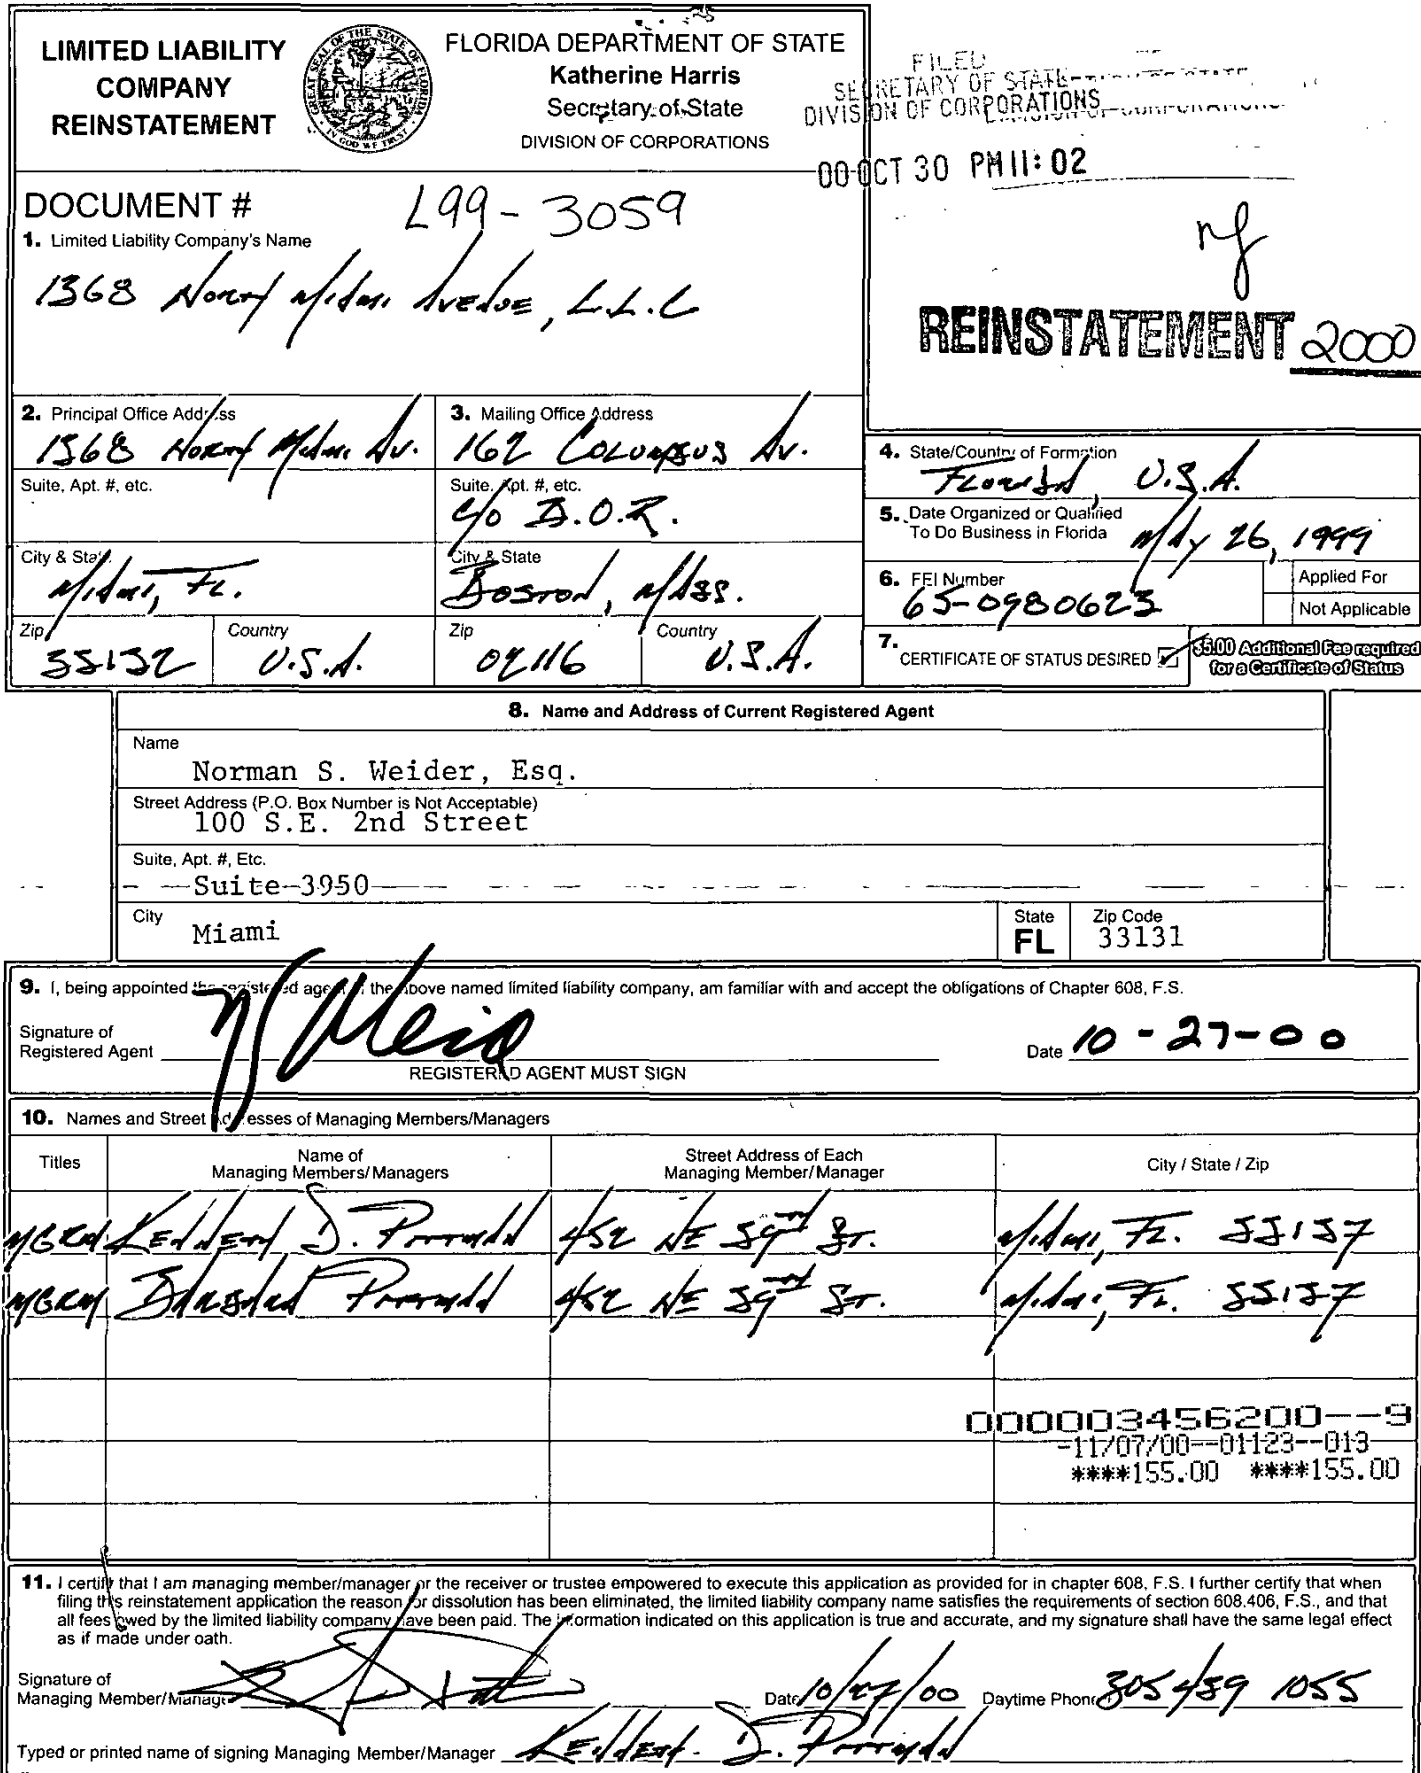 LIMITED LIABILITY
COMPANY
REINSTATEMENT
GREAT SEAL OF THE STATE OF FLORIDA
IN GOD WE TRUST
FLORIDA DEPARTMENT OF STATE
Katherine Harris
Secretary of State
DIVISION OF CORPORATIONS
FILED
SECRETARY OF STATE
DIVISION OF CORPORATIONS
00 OCT 30 PM 11:02
DOCUMENT # L99-3059
1. Limited Liability Company's Name
1368 North Miami Avenue, L.L.C
REINSTATEMENT 2000
2. Principal Office Address
1368 North Miami Av.
3. Mailing Office Address
162 Columbus Av.
Suite, Apt. #, etc.
Suite, Apt. #, etc.
c/o D.O.R.
City & State
Miami, FL.
City & State
Boston, Mass.
Zip
33132
Country
U.S.A.
Zip
02116
Country
U.S.A.
4. State/Country of Formation
Florida, U.S.A.
5. Date Organized or Qualified
To Do Business in Florida
May 26, 1999
6. FEI Number
65-0980623
Applied For
Not Applicable
7. CERTIFICATE OF STATUS DESIRED
$5.00 Additional Fee required
for a Certificate of Status
8. Name and Address of Current Registered Agent
Name
Norman S. Weider, Esq.
Street Address (P.O. Box Number is Not Acceptable)
100 S.E. 2nd Street
Suite, Apt. #, Etc.
Suite 3950
City
Miami
State
FL
Zip Code
33131
9. I, being appointed the registered agent of the above named limited liability company, am familiar with and accept the obligations of Chapter 608, F.S.
Signature of
Registered Agent
Date 10-27-00
REGISTERED AGENT MUST SIGN
10. Names and Street Addresses of Managing Members/Managers
Titles
Name of
Managing Members/Managers
Street Address of Each
Managing Member/Manager
City / State / Zip
MGRM D. 452 NE 39th St. Miami, FL. 33137
MGRM 452 NE 39th St. Miami, FL. 33137
000003456200--9
-11/07/00--01123--013
****155.00 ****155.00
11. I certify that I am managing member/manager or the receiver or trustee empowered to execute this application as provided for in chapter 608, F.S. I further certify that when
filing this reinstatement application the reason for dissolution has been eliminated, the limited liability company name satisfies the requirements of section 608.406, F.S., and that
all fees owed by the limited liability company have been paid. The information indicated on this application is true and accurate, and my signature shall have the same legal effect
as if made under oath.
Signature of
Managing Member/Manager
Date 10/27/00 Daytime Phone 305 489 1055
Typed or printed name of signing Managing Member/Manager D.